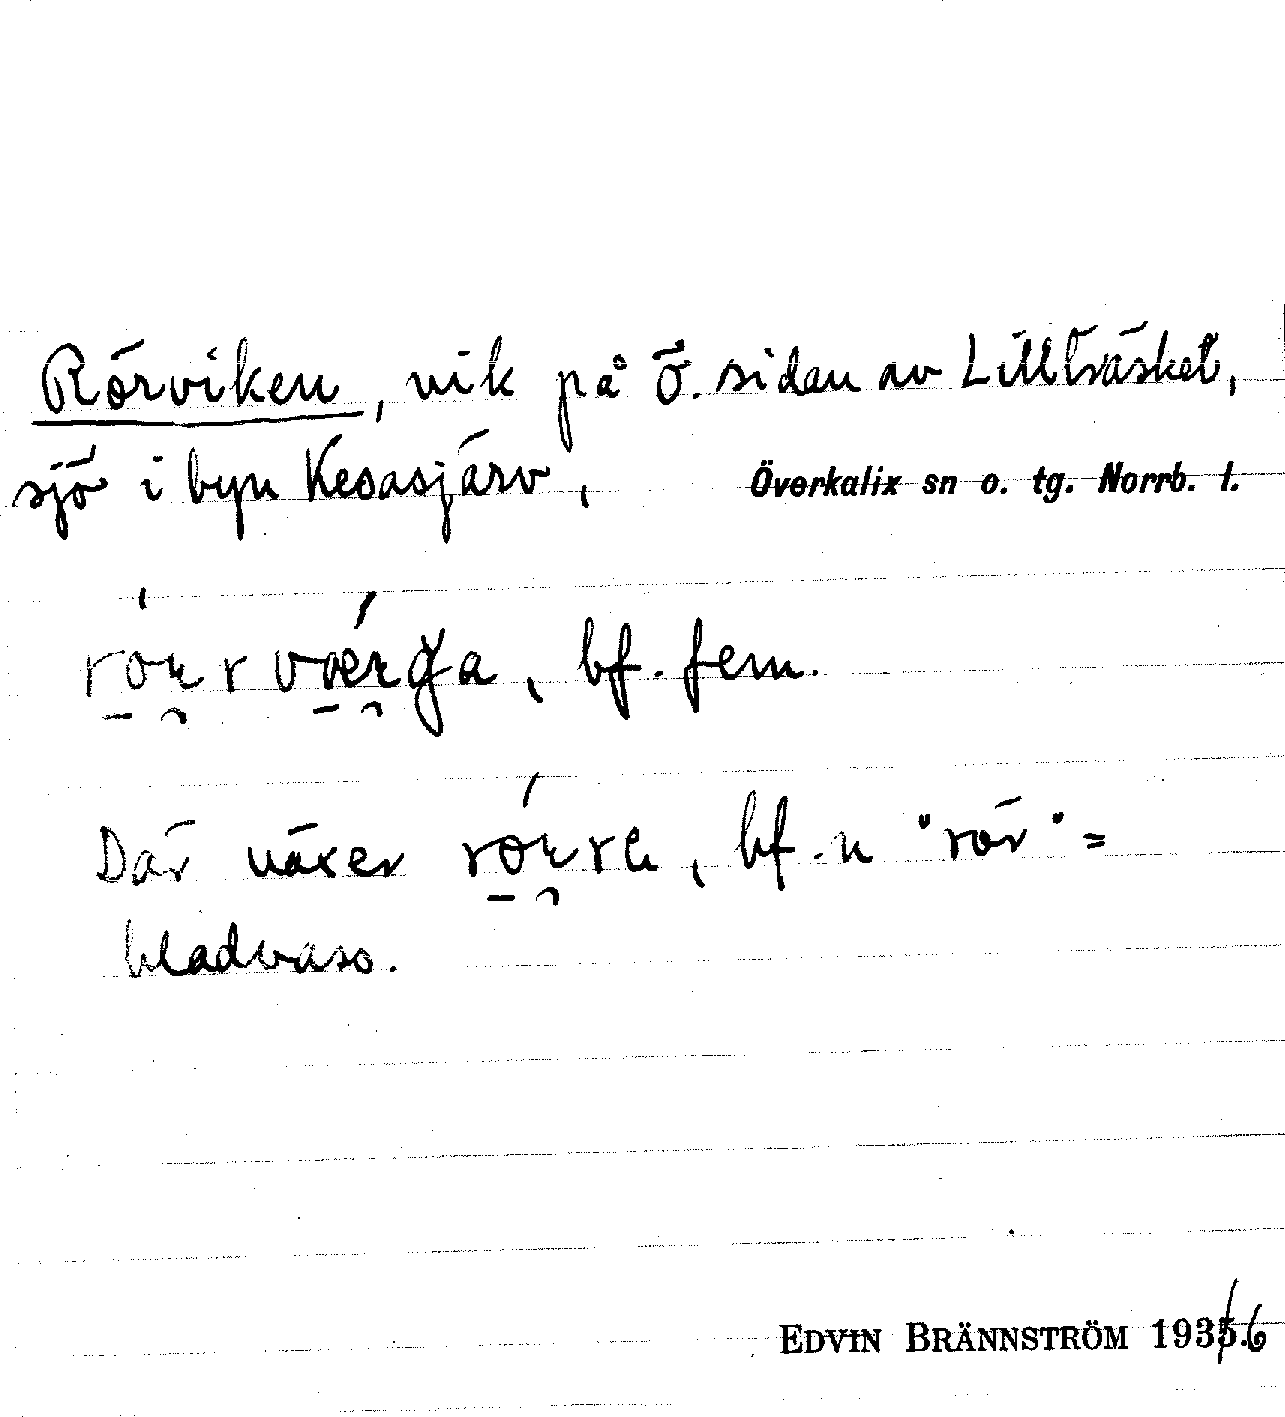 Rörviken, vik på ö. sidan av Lillträsket,
sjö i byn Kesasjärv, Överkalix sn o. tg. Norrb. l.
bf. fem.
Där växer bf. n "rör" =
bladvass.
EDVIN BRÄNNSTRÖM 1936